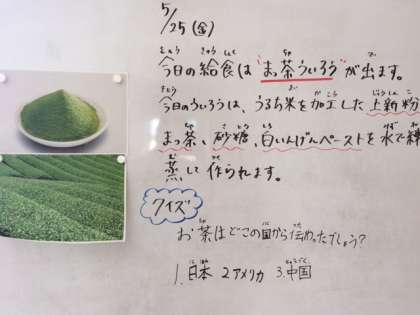 5/25(金)
今日の給食は"まっ茶ういろう"が出ます。
今日のういろうは、うるち米を加工した上新粉
まっ茶、砂糖、白いんげんペーストを水で練
蒸して作られます。
クイズ
お茶はどこの国から伝わったでしょう?
1.日本 2アメリカ 3.中国